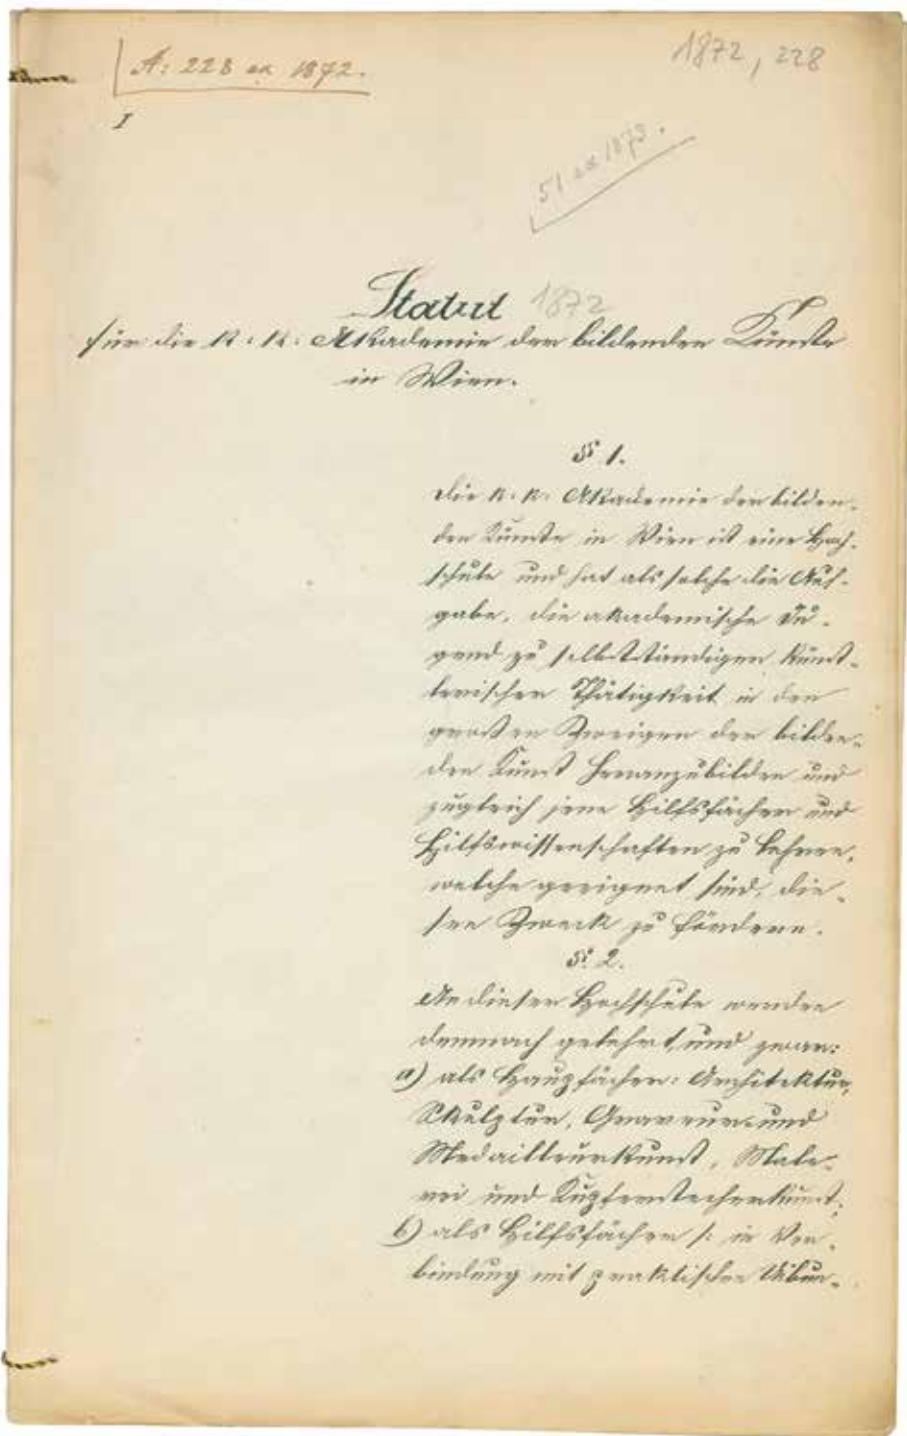 A: 228 ex 1872.
1872, 228
I
51 ex 1873.
Statut 1872
für die k: k: Akademie der bildenden Künste
in Wien.
§ 1.
Die k. k. Akademie der bilden-
den Künste in Wien ist eine Hoch-
schule und hat als solche die Auf-
gabe, die akademische Ju-
gend zu selbstständigen künst-
lerischen Thätigkeit in den
großen Zweigen der bilden-
den Kunst heranzubilden und
zugleich jene Hilfsfächer und
Hilfswissenschaften zu lehren,
welche geeignet sind, die-
sen Zweck zu fördern.
§. 2.
An dieser Hochschule werden
demnach gelehrt, und zwar:
a) als Hauptfächer: Architektur,
Skulptur, Graveur- und
Medailleurkunst, Male-
rei und Kupferstecherkunst;
b) als Hilfsfächer /: in Ver-
bindung mit praktischen Uibun-